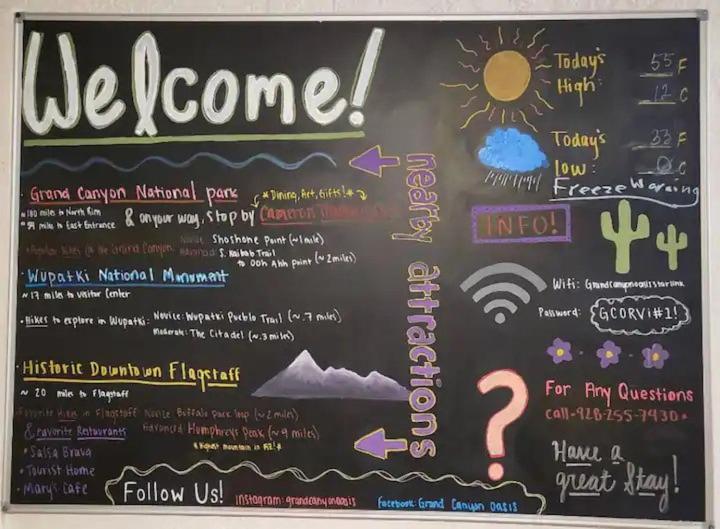 Welcome!
nearby attractions
· Grand Canyon National park
* Dining, Art, Gifts! *
~ 180 miles to North Rim
~ 59 mile to East Entrance
& on your way, stop by Cameron
· Popular hikes @ the Grand Canyon: Novice: Shoshone Point (~1 mile)
Advanced: S. Kaibab Trail
to Ooh Ahh point (~2 miles)
· Wupatki National Monument
~ 17 miles to visitor center
· Hikes to explore in Wupatki: Novice: Wupatki Pueblo Trail (~.7 miles)
Moderate: The Citadel (~.3 miles)
· Historic Downtown Flagstaff
~ 20 miles to Flagstaff
Favorite Hikes in Flagstaff Novice Buffalo Park loop (~2 miles)
Advanced Humphreys Peak (~9 miles)
* Highest mountain in AZ! *
& Favorite Restaurants
• Salsa Brava
• Tourist Home
• Mary's Cafe
Follow Us!
Instagram: grandcanyonoasis
Facebook: Grand Canyon Oasis
Today's High: 55 F
12 C
Today's Low: 33 F
0 C
Freeze Warning
INFO!
Wifi: Grandcanyonoasisstarlink
Password: GCORVi#1!
?
For Any Questions
call-928-255-7430·
Have a
great Stay!